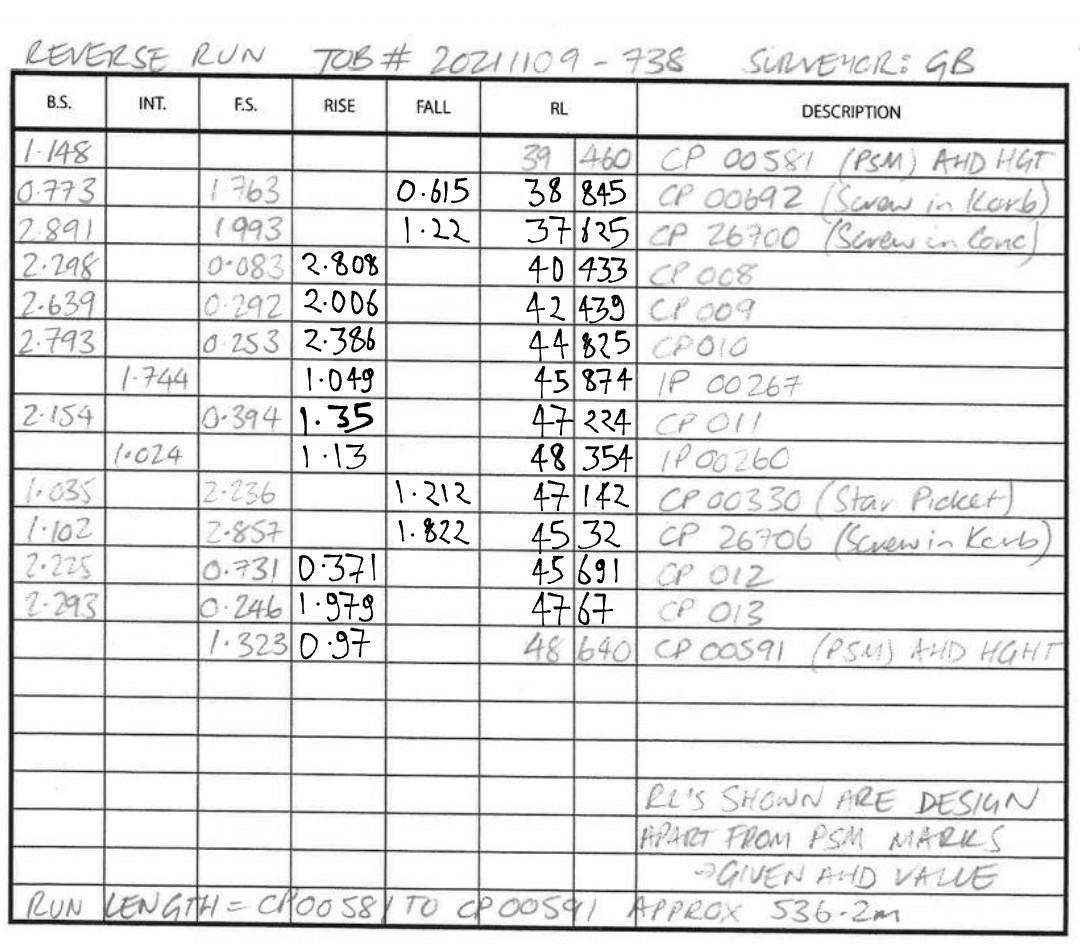 REVERSE RUN JOB # 20211109 - 738 SURVEYOR: GB
B.S. INT. F.S. RISE FALL RL DESCRIPTION
1.148 39 460 CP 00581 (PSM) AHD HGT
0.773 1.763 0.615 38 845 CP 00692 (Screw in Kerb)
2.891 1.993 1.22 37 625 CP 26700 (Screw in Conc)
2.298 0.083 2.808 40 433 CP 008
2.639 0.292 2.006 42 439 CP 009
2.793 0.253 2.386 44 825 CP 010
1.744 1.049 45 874 IP 00267
2.154 0.394 1.35 47 224 CP 011
1.024 1.13 48 354 IP 00260
1.035 2.236 1.212 47 142 CP 00330 (Star Picket)
1.102 2.857 1.822 45 32 CP 26706 (Screw in Kerb)
2.225 0.731 0.371 45 691 CP 012
2.293 0.246 1.979 47 67 CP 013
1.323 0.97 48 640 CP 00591 (PSM) AHD HGHT
RL'S SHOWN ARE DESIGN
APART FROM PSM MARKS
→GIVEN AHD VALUE
RUN LENGTH = CP00581 TO CP00591 APPROX 536.2m